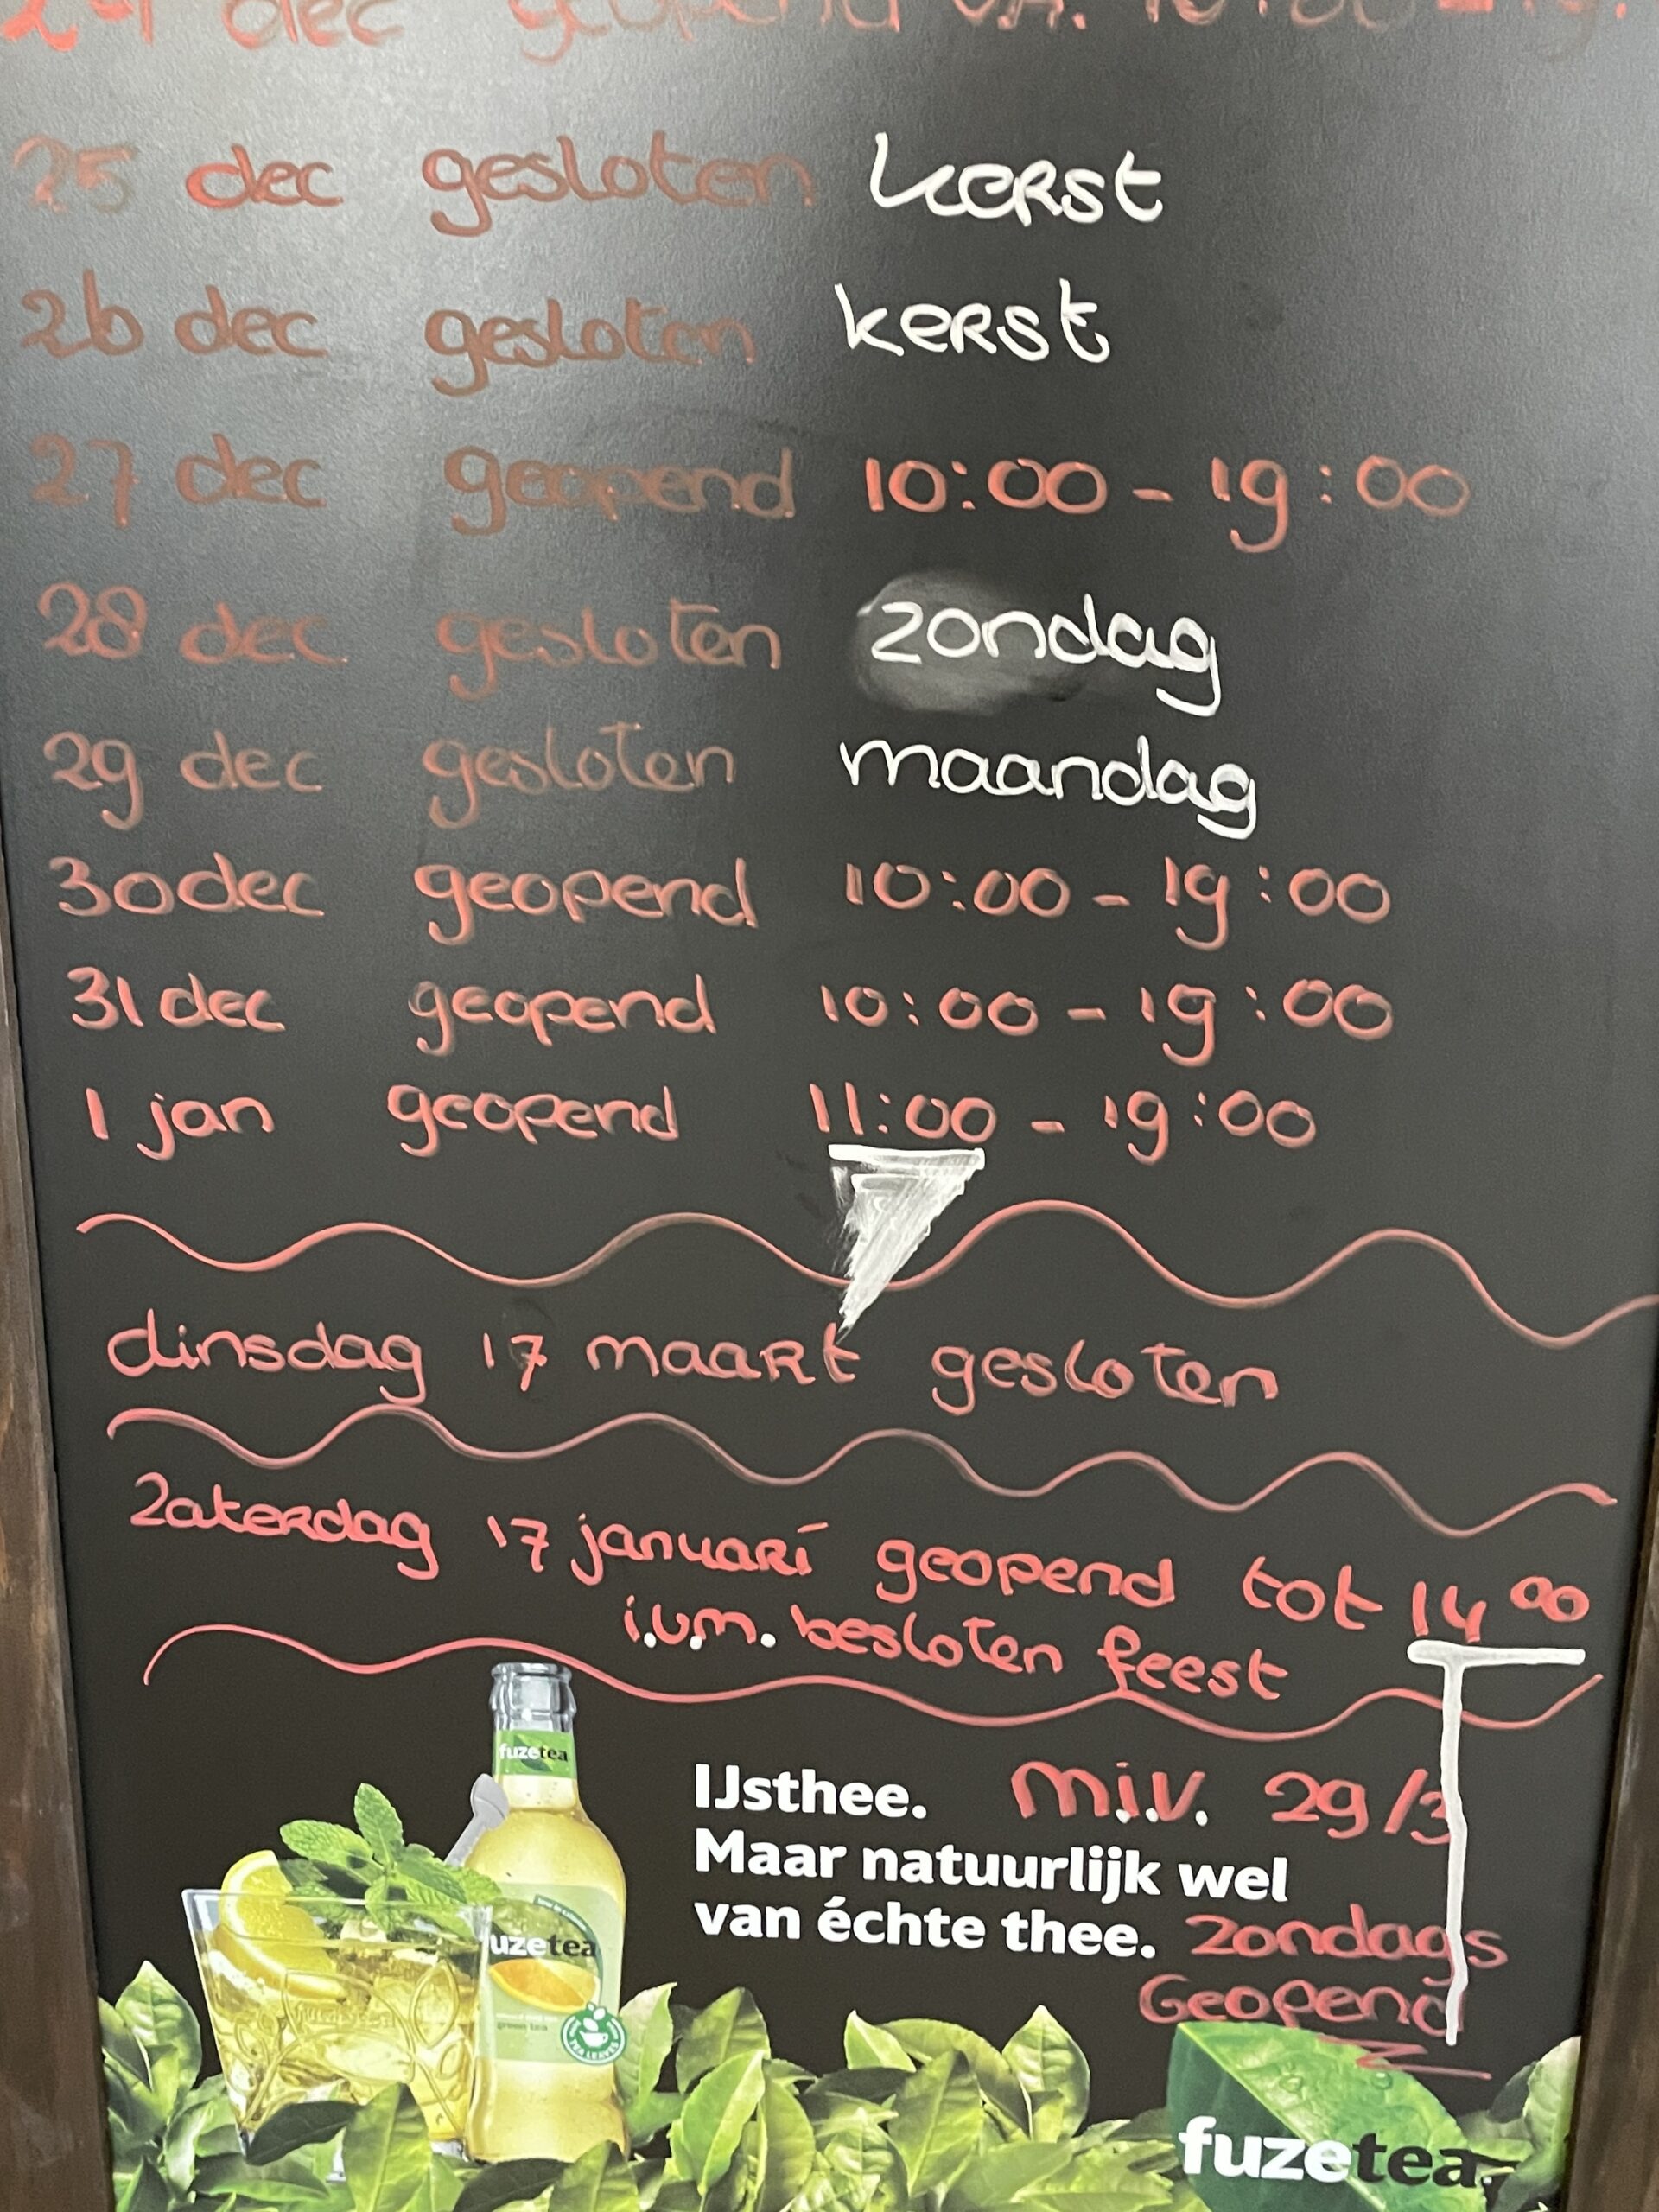 24 dec geopend v.a. 10:00 - 19:
25 dec gesloten kerst
26 dec gesloten kerst
27 dec geopend 10:00 - 19:00
28 dec gesloten zondag
29 dec gesloten maandag
30 dec geopend 10:00 - 19:00
31 dec geopend 10:00 - 19:00
1 jan geopend 11:00 - 19:00
dinsdag 17 maart gesloten
Zaterdag 17 januari geopend tot 14 00
i.v.m. besloten feest
fuzetea
IJsthee. m.i.v. 29/3
Maar natuurlijk wel
van échte thee. zondags
Geopend
uzetea
green tea
TEA LEAVES
fuzetea